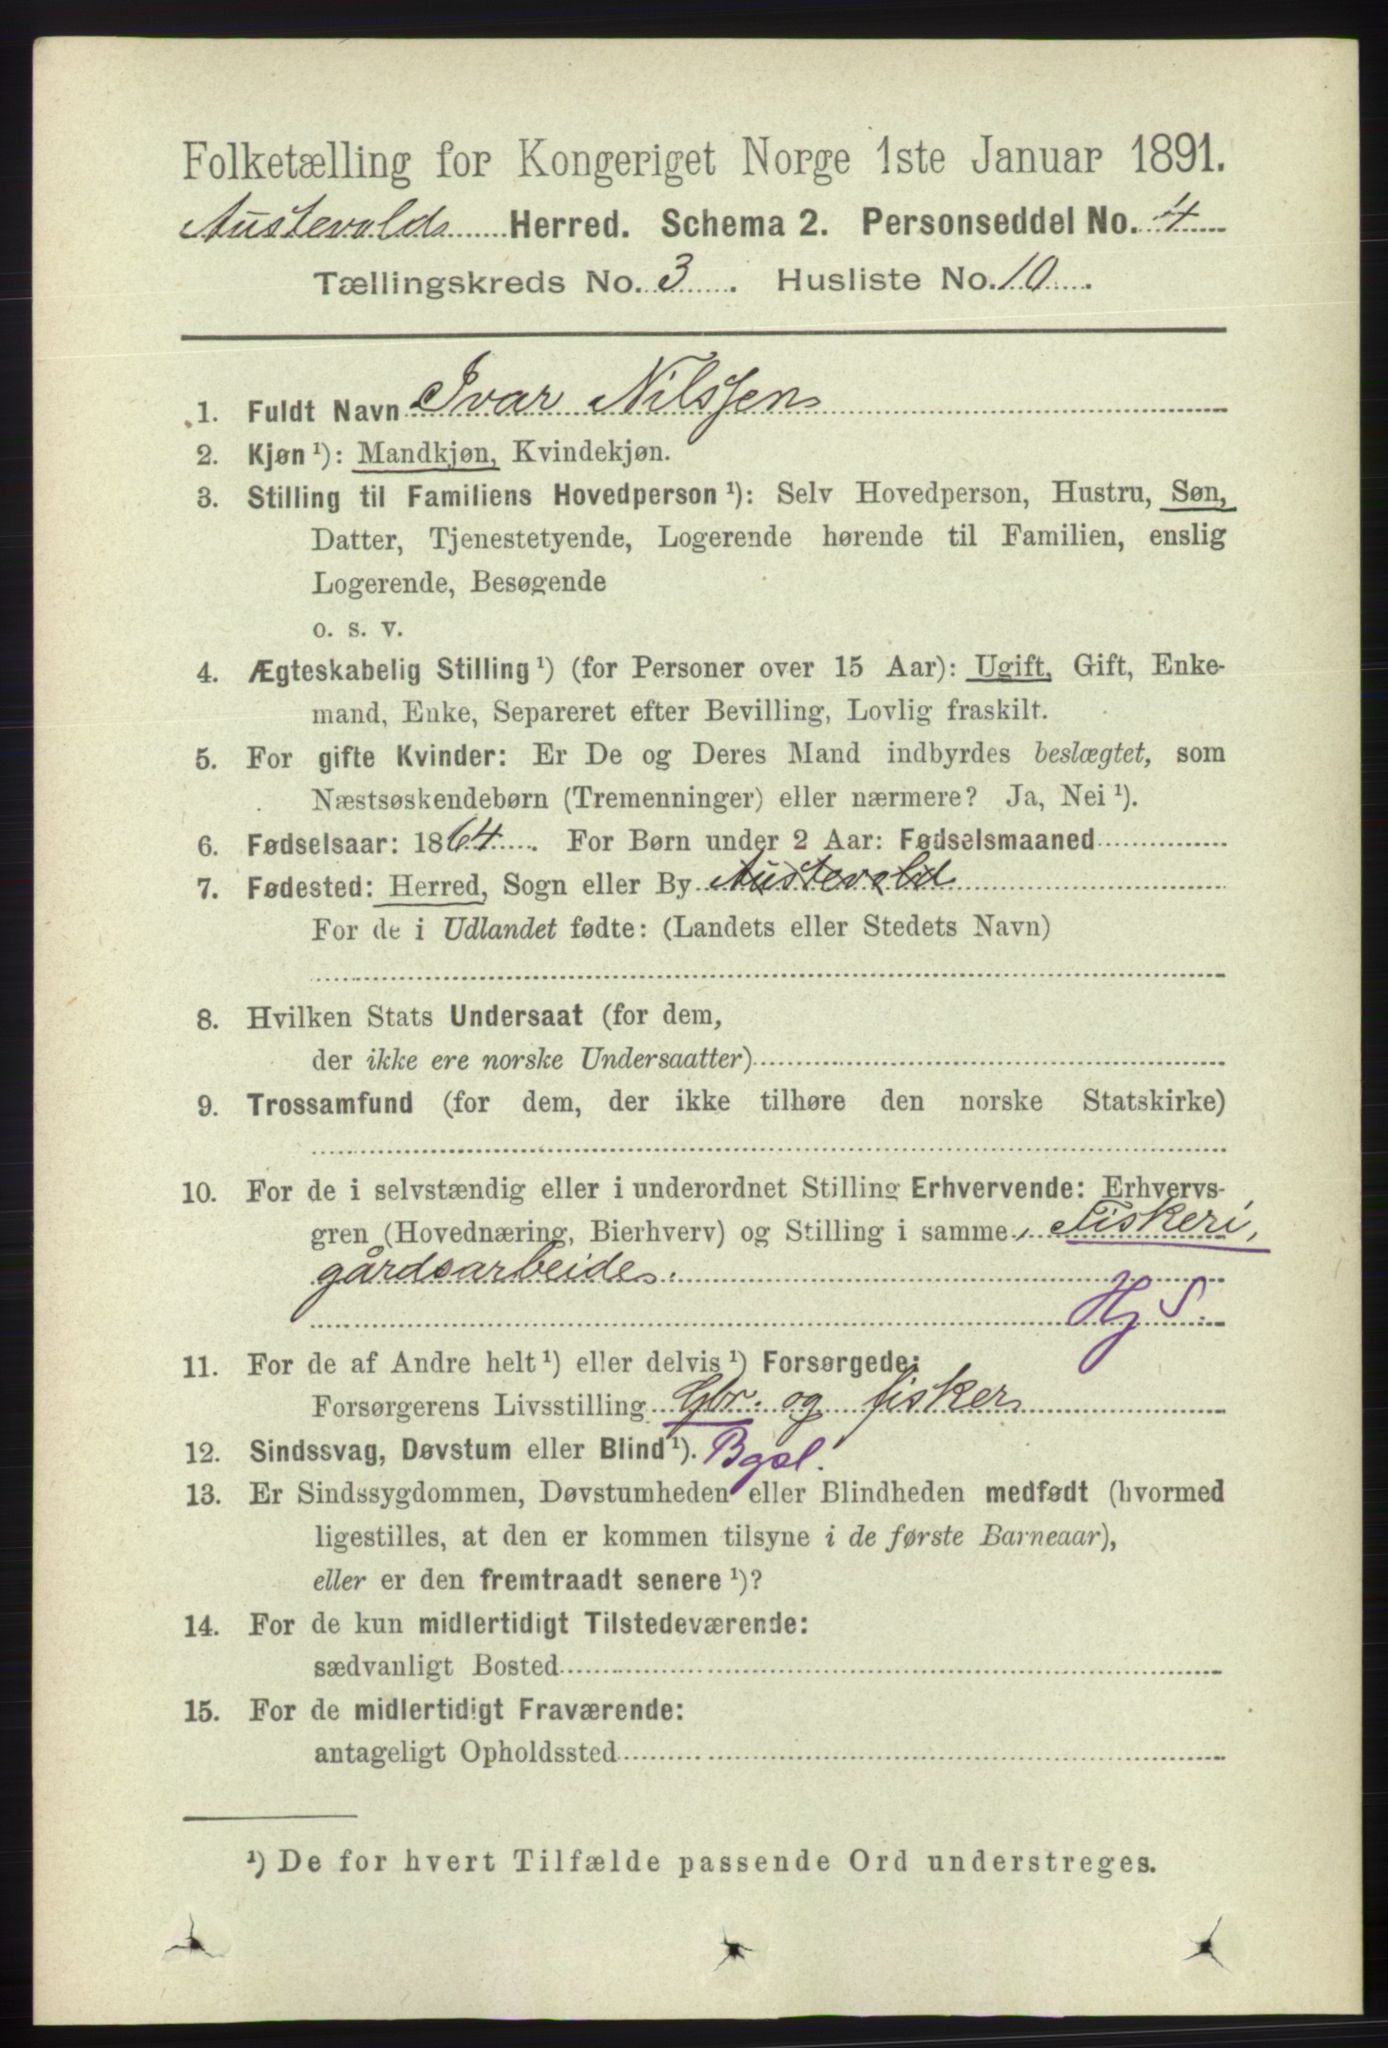 Folketælling for Kongeriget Norge 1ste Januar 1891.
Austevolds Herred. Schema 2. Personseddel No. 4
Tællingskreds No. 3. Husliste No. 10.
1. Fuldt Navn Ivar Nilssen
2. Kjøn ¹): Mandkjøn, Kvindekjøn.
3. Stilling til Familiens Hovedperson ¹): Selv Hovedperson, Hustru, Søn,
Datter, Tjenestetyende, Logerende hørende til Familien, enslig
Logerende, Besøgende
o. s. v.
4. Ægteskabelig Stilling ¹) (for Personer over 15 Aar): Ugift, Gift, Enke-
mand, Enke, Separeret efter Bevilling, Lovlig fraskilt.
5. For gifte Kvinder: Er De og Deres Mand indbyrdes beslægtet, som
Næstsøskendebørn (Tremenninger) eller nærmere? Ja, Nei ¹).
6. Fødselsaar: 1864. For Børn under 2 Aar: Fødselsmaaned
7. Fødested: Herred, Sogn eller By Austevold
For de i Udlandet fødte: (Landets eller Stedets Navn)
8. Hvilken Stats Undersaat (for dem,
der ikke ere norske Undersaatter)
9. Trossamfund (for dem, der ikke tilhøre den norske Statskirke)
10. For de i selvstændig eller i underordnet Stilling Erhvervende: Erhvervs-
gren (Hovednæring, Bierhverv) og Stilling i samme, Fiskeri,
gårdsarbeide.
Hj S.
11. For de af Andre helt ¹) eller delvis ¹) Forsørgede:
Forsørgerens Livsstilling Gbr. og fisker
12. Sindssvag, Døvstum eller Blind ¹). Bgsl.
13. Er Sindssygdommen, Døvstumheden eller Blindheden medfødt (hvormed
ligestilles, at den er kommen tilsyne i de første Barneaar),
eller er den fremtraadt senere ¹)?
14. For de kun midlertidigt Tilstedeværende:
sædvanligt Bosted
15. For de midlertidigt Fraværende:
antageligt Opholdssted
¹) De for hvert Tilfælde passende Ord understreges.